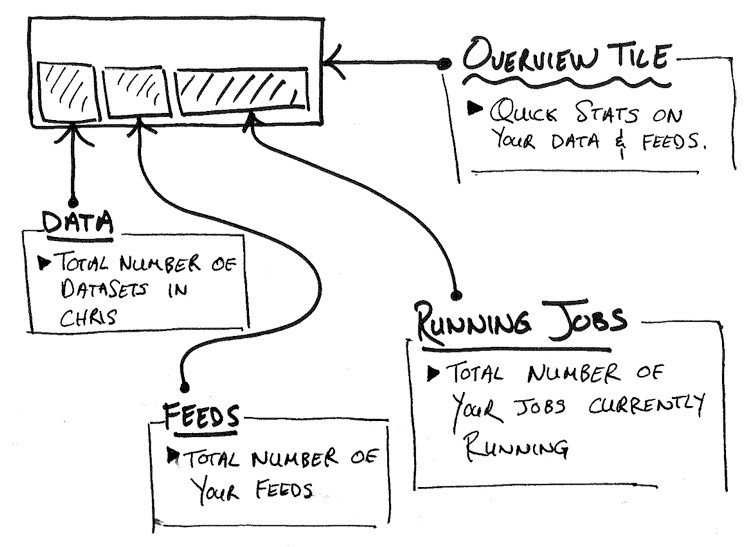 OVERVIEW TILE
▶ QUICK STATS ON
YOUR DATA & FEEDS.
DATA
▶ TOTAL NUMBER OF
DATASETS IN
CHRIS
RUNNING JOBS
▶ TOTAL NUMBER OF
YOUR JOBS CURRENTLY
RUNNING
FEEDS
▶ TOTAL NUMBER OF
YOUR FEEDS